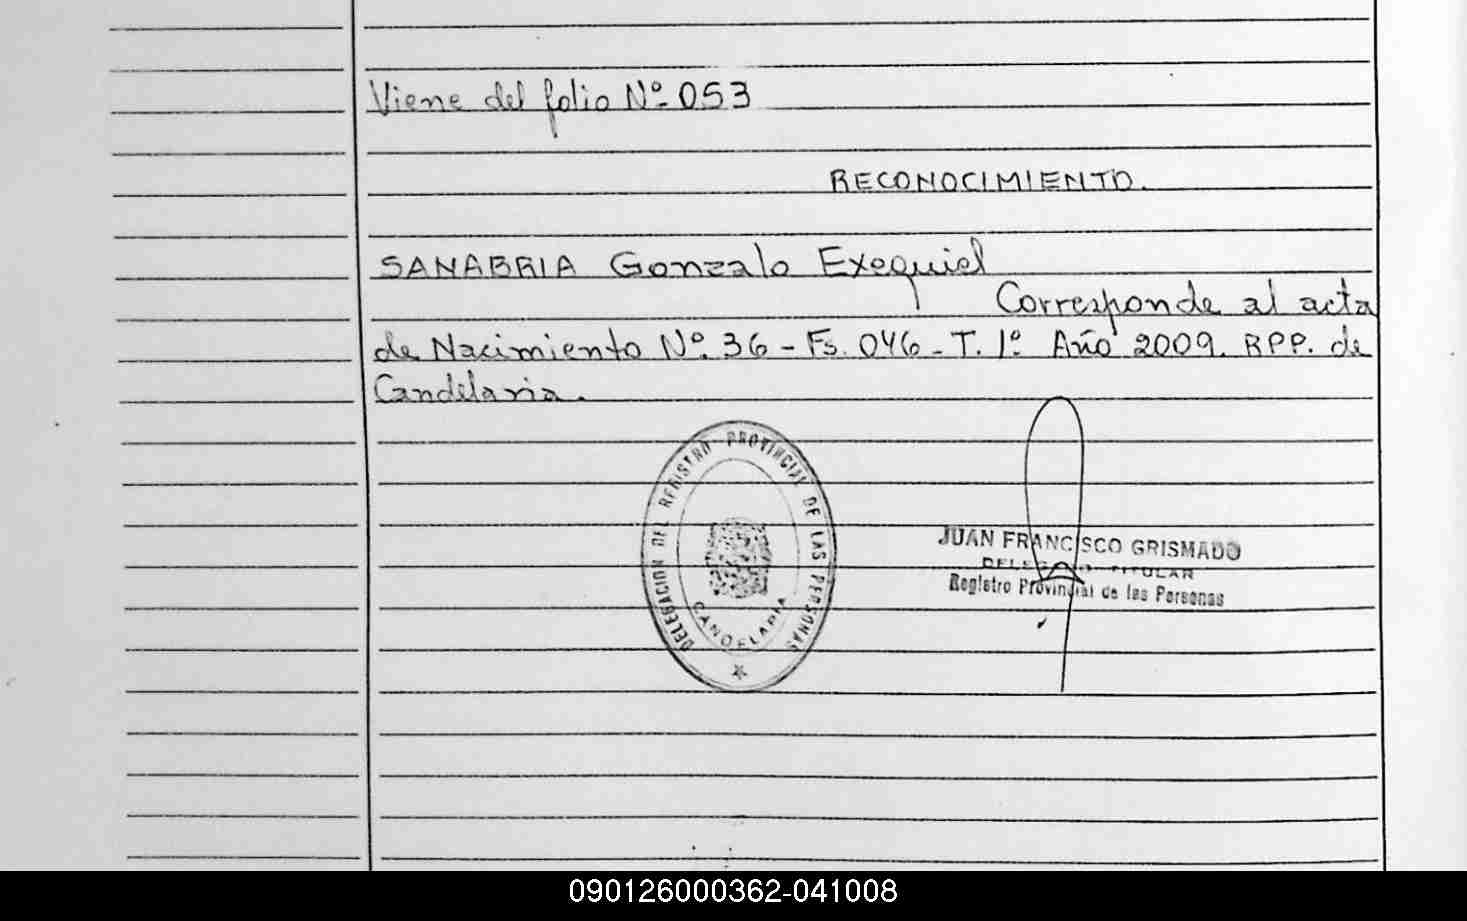 Viene del folio Nº 053
RECONOCIMIENTO.
SANABRIA Gonzalo Exequiel
Corresponde al acta
de Nacimiento Nº. 36 - Fs. 046 - T. 1º. Año 2009. RPP. de
Candelaria.
DELEGACION DEL REGISTRO PROVINCIAL DE LAS PERSONAS
CANDELARIA
JUAN FRANCISCO GRISMADO
DELEGADO TITULAR
Registro Provincial de las Personas
090126000362-041008